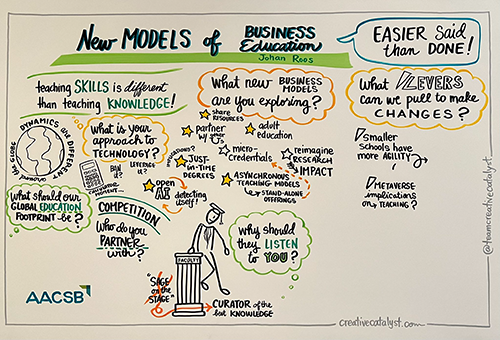 New MODELS of BUSINESS Education
Johan Roos
EASIER Said
than DONE!
teaching SKILLS is different
than teaching KNOWLEDGE!
DYNAMICS ARE DIFFERENT
around the GLOBE
What is your
approach to
TECHNOLOGY?
BAN it?
LEVERAGE it?
open AI
detecting
itself!
What should our
GLOBAL EDUCATION
FOOTPRINT be?
COMPETITION
Who do you
PARTNER
with?
What new BUSINESS
MODELS
are you exploring?
share
RESOURCES
partner
w/
adult
education
micro-
credentials
JUST-
IN-TIME
DEGREES
reimagine
RESEARCH
IMPACT
ASYNCHRONOUS
TEACHING MODELS
STAND-ALONE
OFFERINGS
Why should
they LISTEN
to YOU?
FACULTY
"SAGE
on the
STAGE"
CURATOR of the
best KNOWLEDGE
What LEVERS
can we pull to make
CHANGES?
Smaller
Schools have
more AGILITY
METAVERSE
implications
on TEACHING?
AACSB
@teamcreativecatalyst
creativecatalyst.com